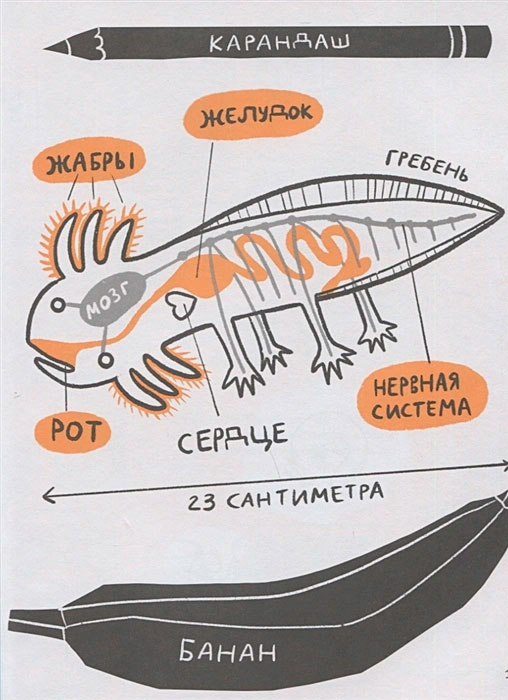 КАРАНДАШ
ЖЕЛУДОК
ЖАБРЫ
ГРЕБЕНЬ
МОЗГ
НЕРВНАЯ
СИСТЕМА
РОТ
СЕРДЦЕ
23 САНТИМЕТРА
БАНАН